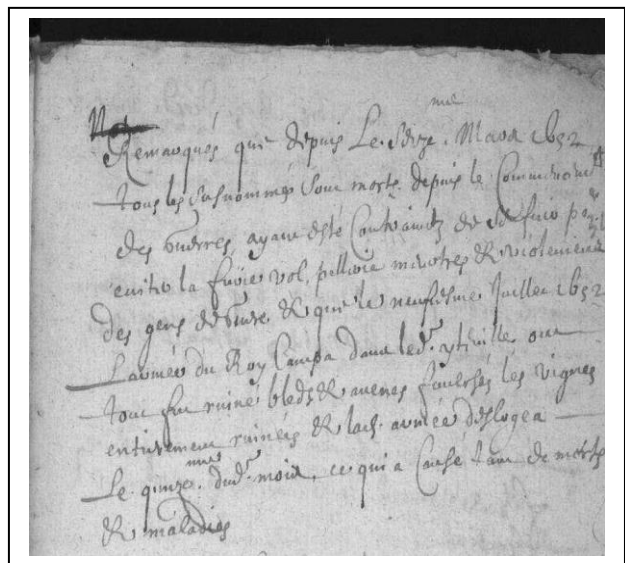 Nota
me
Remarqués que depuis Le Seize. Mars 1652
tous les susnommés sont morts depuis le Commencement
des guerres, ayant esté Contraintz de s'enfuir po.r
eviter la furie vol, pillerie meurtres & violences
des gens de guerre & que le neufiesme Juillet 1652
L'armée du Roy Campa dans led. ytteville ou
tout fut ruiné bleds & avenes fauchés les vignes
entierement ruinées & lad. armée deslogea
me
Le quinze. dud. mois, ce qui a Causé tant de morts
& maladies